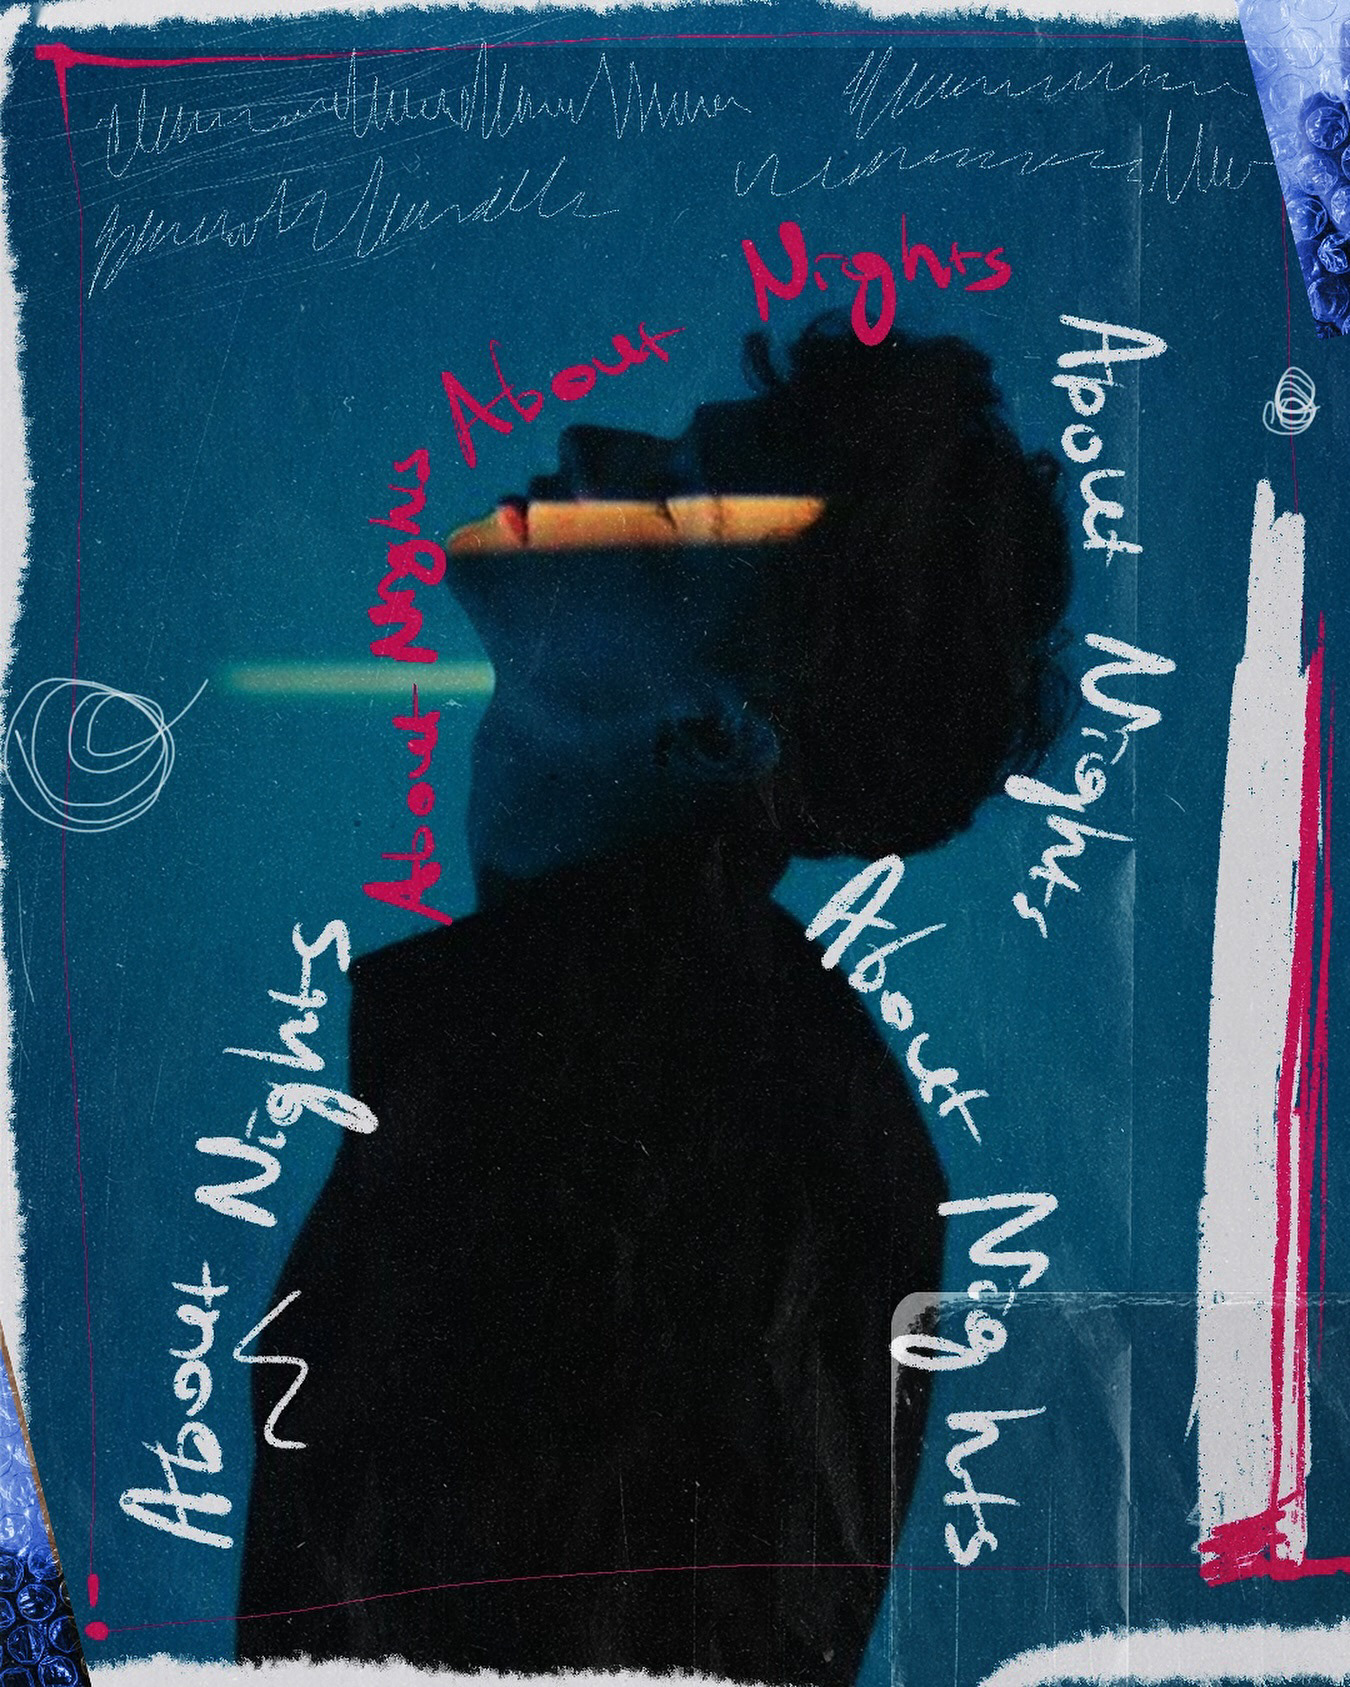 About Nights
About Nights
About Nights
About Nights
About Nights